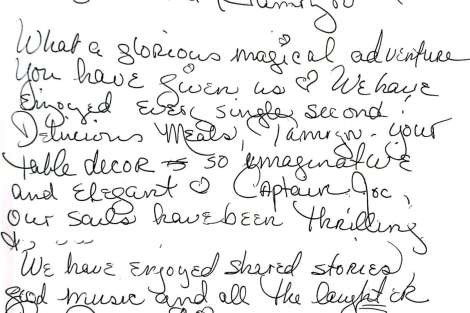 Tamryn
What a glorious magical adventure
you have given us ♡ We have
enjoyed every single second!
Delicious Meals, Tamryn - your
table decor so ymaginative
and Elegant ♡ Captain Joe,
Our sails have been thrilling
We have enjoyed shared stories,
good music and all the laughter